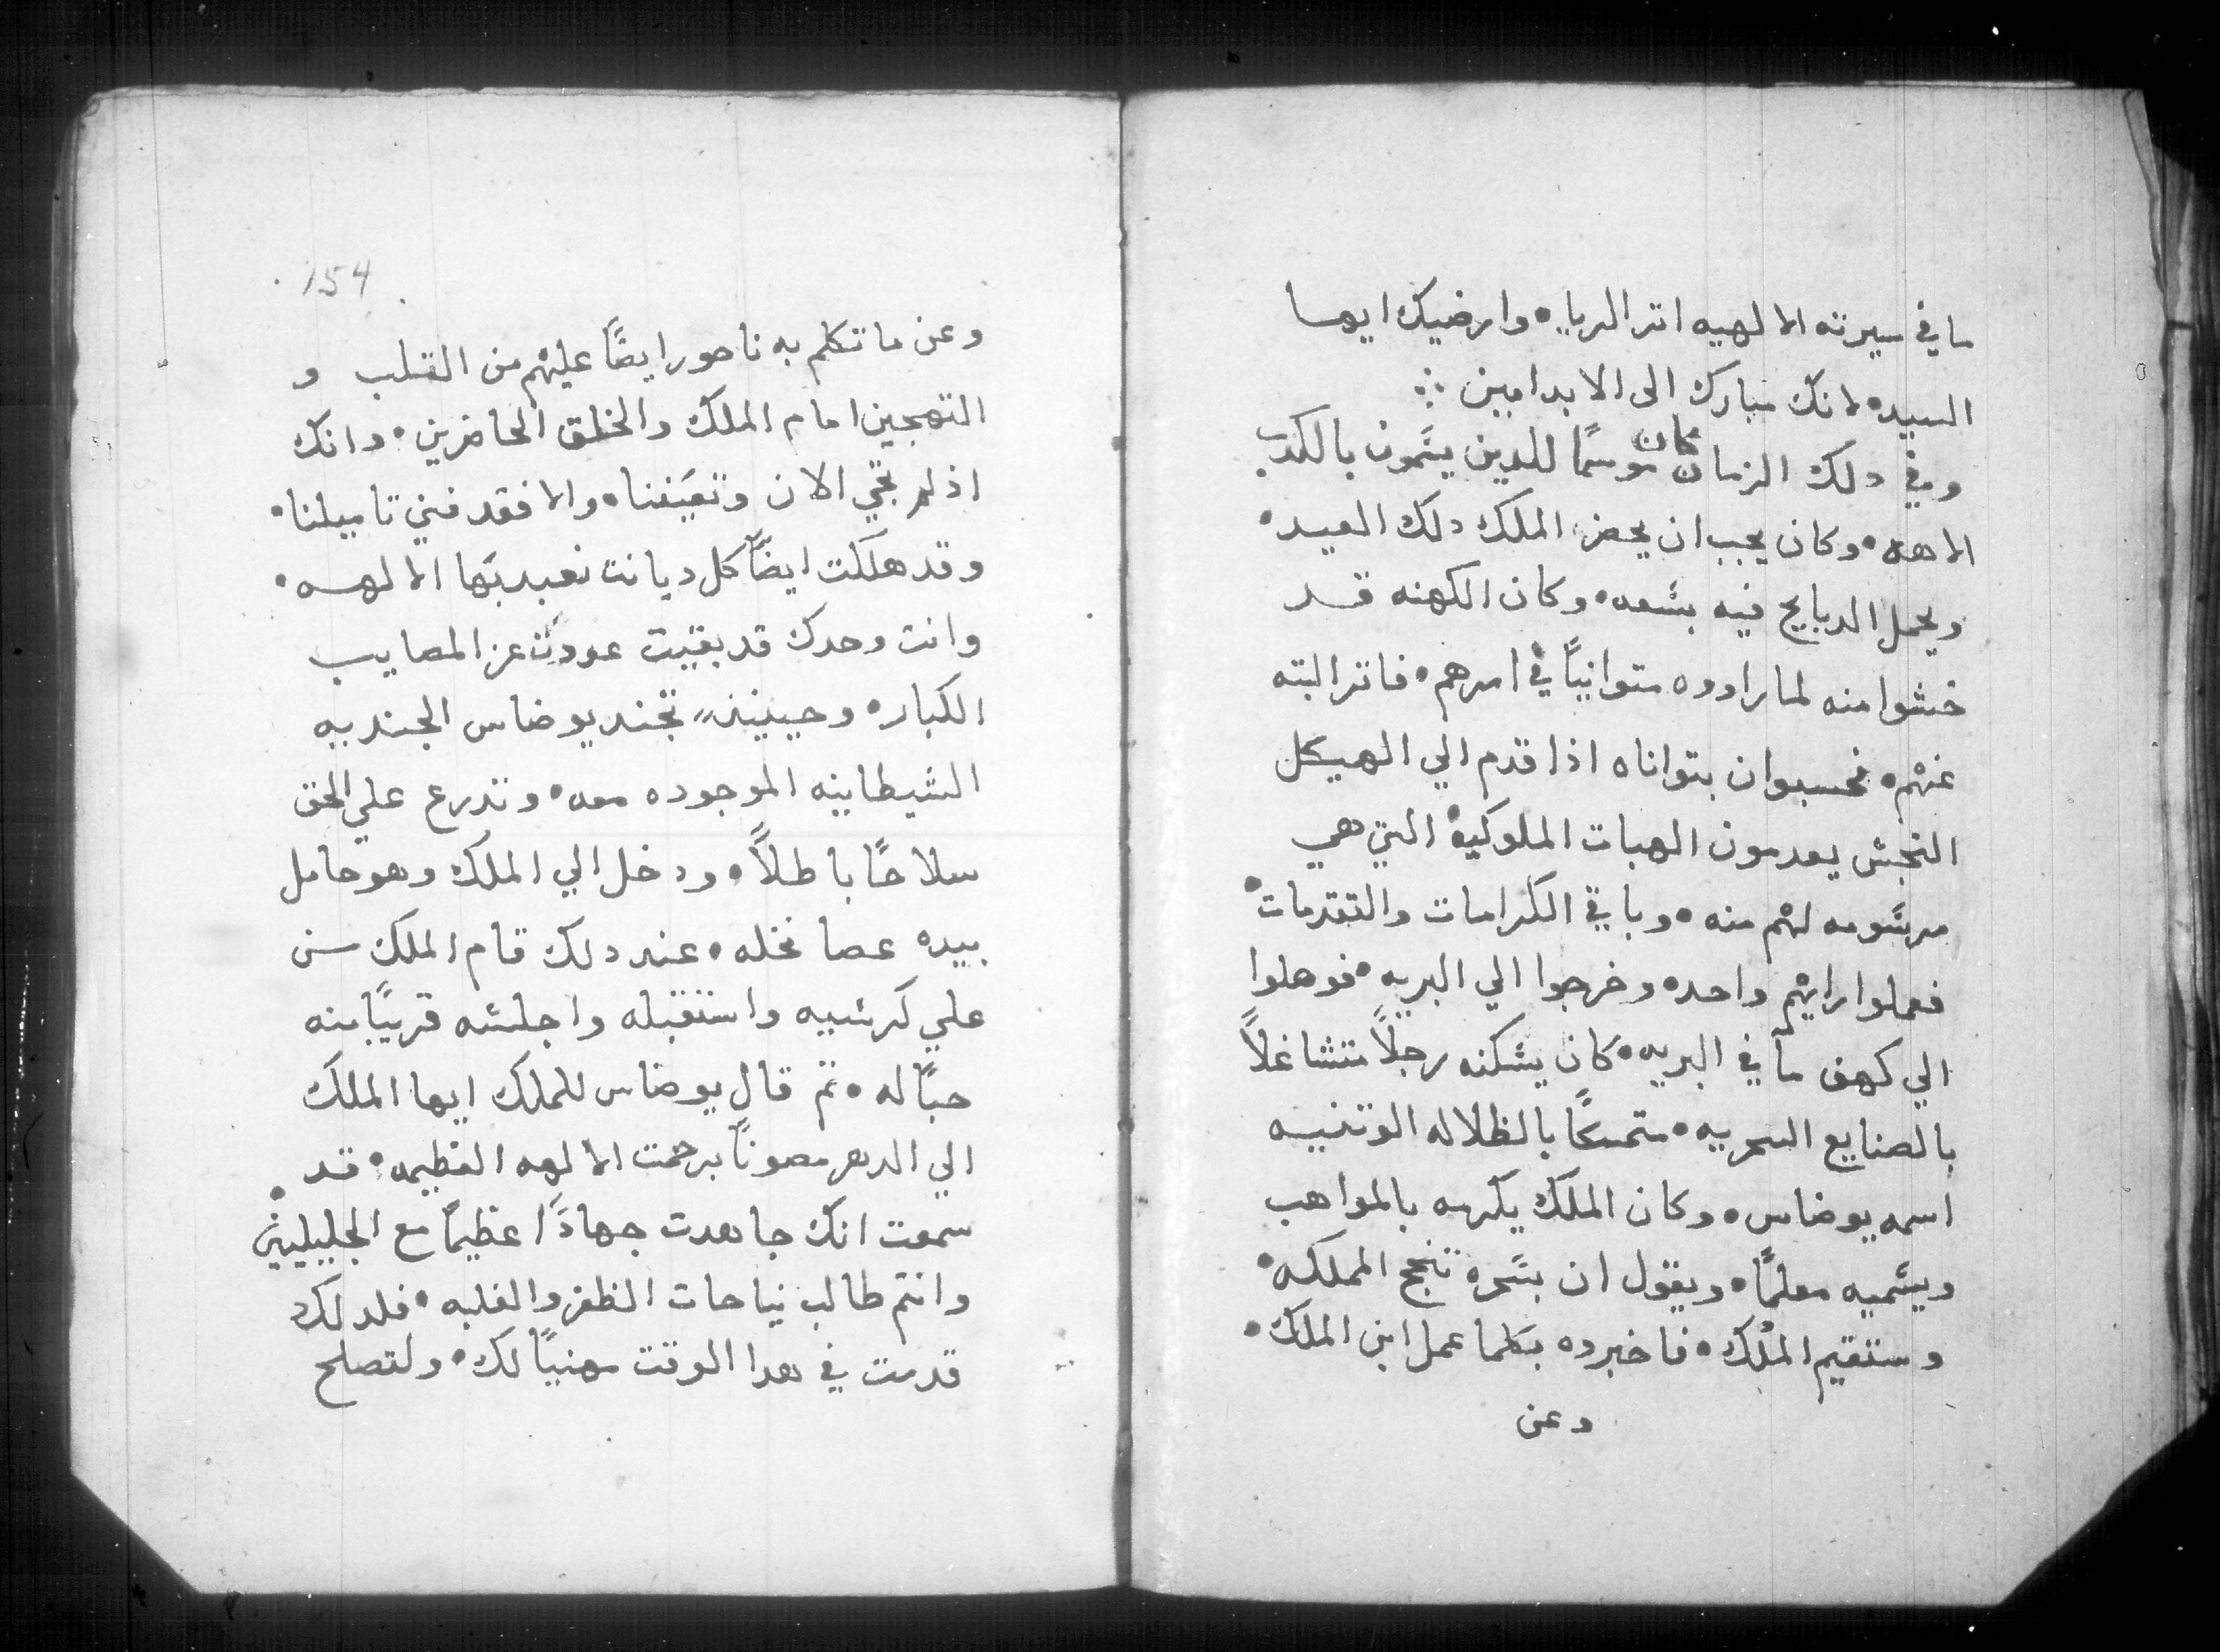 ما في سيرته الالهيه اثر الريا، وارضيك ايها
السيد، لانك مبارك الى الابد امين ⁘
وفي دلك الزمان كان موسمًا للدين يسَمون بالكدب
الاهه، وكان يجب ان يحضر الملك دلك العيد،
ويحمل الدبايح فيه بسَعه، وكان الكهنه قد
خشوا منه لما راووه متوانيًا في امرهم، فاتر البته
عنهم، فحسبوا ان بتواناه اذا قدم الي الهيكل
النجس يعدمون الهبات الملوكيه التي هي
مرسَومه لهم منه، وباقي الكرامات والتقدمات،
فعملوا رايهم واحده وخرجوا الي البريه، فوهلوا
الي كهف ما في البريه، كان يسَكنه رجلاً متشاغلاً
بالصنايع السحريه، متمسكًا بالظلاله الوثنيه
اسمه يوضاس، وكان الملك يكرمه بالمواهب
ويسَميه معلمًا، ويقول ان بسَحره تنجح المملكه،
وستقيم الملك، فاخبروه بكلما عمل ابن الملك،
وعن
154
وعن ما تكلم به ناحور ايضًا عليهم من القلب و
التهجين امام الملك والخلق الحاضرين، وانك
اذ لم تجي الان وتعيَننا، والا فقد فني تاميلنا،
وقد هلكت ايضًا كل ديانت تعبد بها الالهه،
وانت وحدك قد بقيت عودت عن المصايب
الكبار، وحينيند تجند يوضاس الجنديه
الشيطانيه الموجوده معه، وتدرع علي الحق
سلاحًا باطلاً، ودخل الي الملك وهو حامل
بيده عصا نخله، عند دلك قام الملك من
علي كرسَيه واستقبله واجلسَه قريبًا منه
حبًا له، ثم قال يوضاس للملك ايها الملك
الي الدهر مصونًا برحمت الالهه العظيمه، قد
سمعت انك جاهدت جهادًا عظيمًا مع الجليليين،
وانتم طالب نياحات الظفر والغلبه، فلدلك
قدمت في هدا الوقت مهنيًا لك، ولتصلح